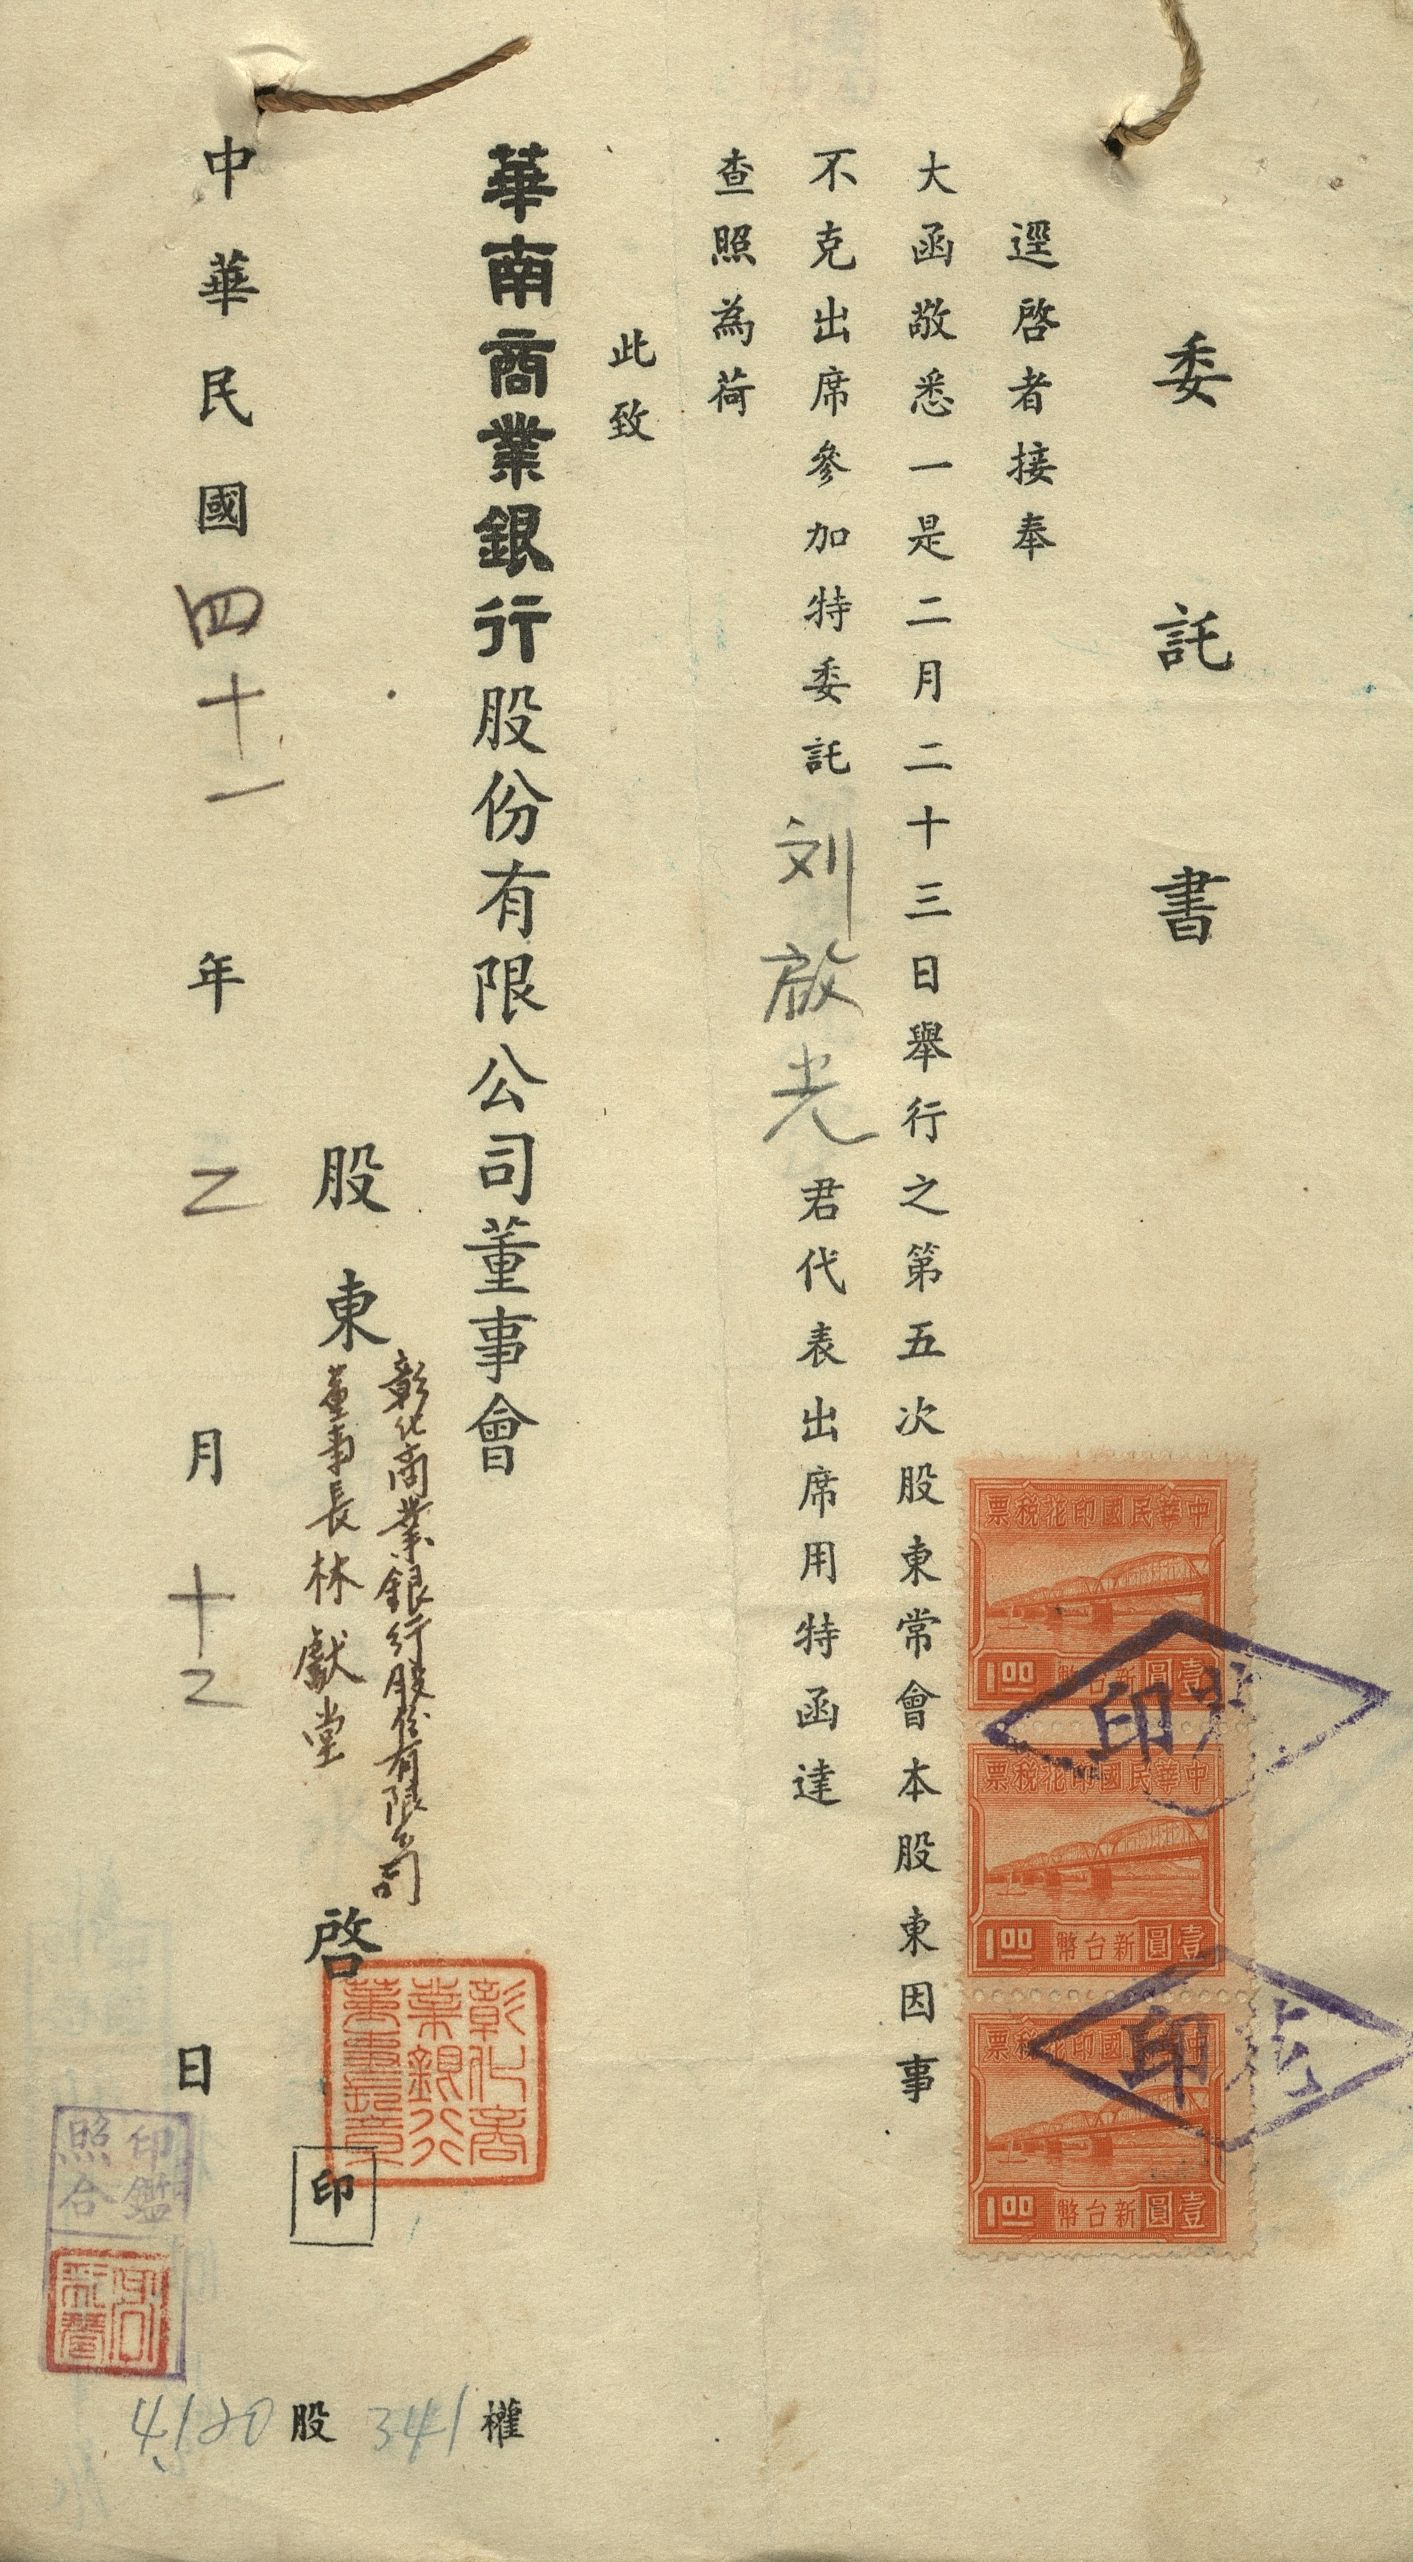 委託書
逕啓者接奉
大函敬悉一是二月二十三日舉行之第五次股東常會本股東因事
不克出席參加特委託刘啟光君代表出席用特函達
查照為荷
此致
華南商業銀行股份有限公司董事會
股東
彰化商業銀行股份有限公司
董事長林獻堂
啓
印
中華民國四十一年二月十二日
4120股341權
中華民國印花稅票
壹圓新台幣
1.00
中華民國印花稅票
壹圓新台幣
1.00
中華民國印花稅票
壹圓新台幣
1.00
花印
花印
彰化商
業銀行
董事長章
印鑑
照合